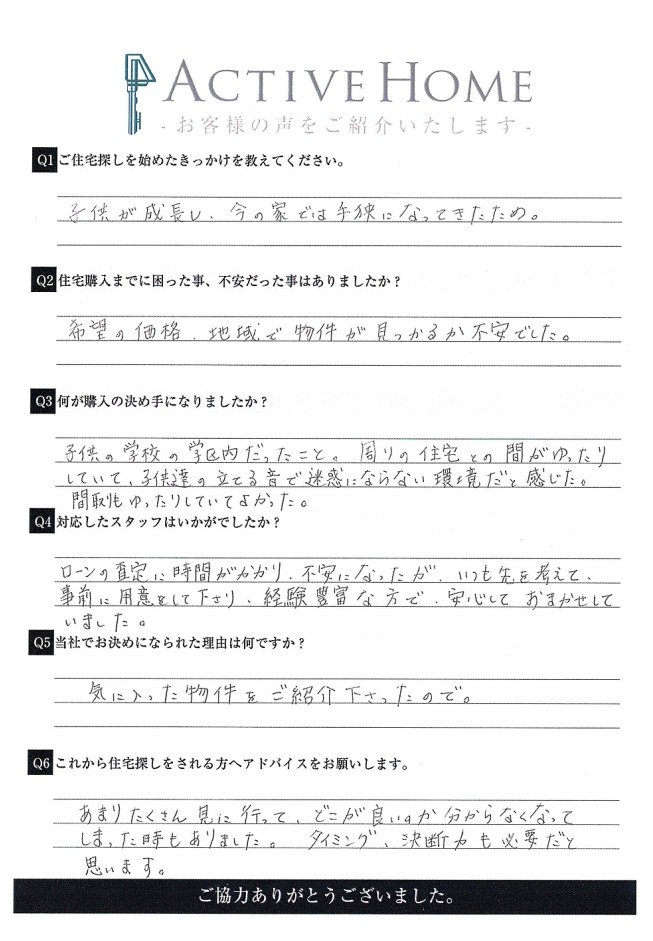 ACTIVE HOME
- お客様の声をご紹介いたします -
Q1 ご住宅探しを始めたきっかけを教えてください。
子供が成長し、今の家では手狭になってきたため。
Q2 住宅購入までに困った事、不安だった事はありましたか？
希望の価格、地域で物件が見つかるか不安でした。
Q3 何が購入の決め手になりましたか？
子供の学校の学区内だったこと。周りの住宅との間がゆったり
していて、子供達の立てる音で迷惑にならない環境だと感じた。
間取りもゆったりしていてよかった。
Q4 対応したスタッフはいかがでしたか？
ローンの査定に時間がかかり、不安になったが、いつも先を考えて、
事前に用意をして下さり、経験豊富な方で、安心しておまかせして
いました。
Q5 当社でお決めになられた理由は何ですか？
気に入った物件をご紹介下さったので。
Q6 これから住宅探しをされる方へアドバイスをお願いします。
あまりたくさん見に行って、どこが良いのか分からなくなって
しまった時もありました。タイミング、決断力も必要だと
思います。
ご協力ありがとうございました。